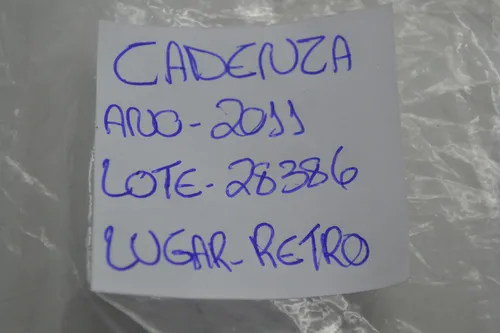 CADENZA
ANO-2011
LOTE-28386
LUGAR-RETRO